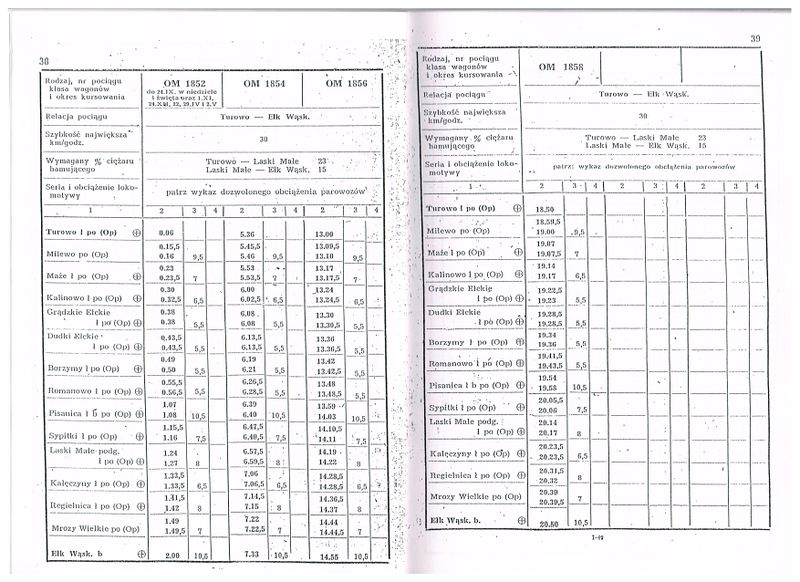 38
Rodzaj, nr pociągu klasa wagonów i okres kursowania | OM 1852 do 24.IX. w niedziele i święta oraz 1.XI, 24.XII, 32, 29.IV i 2.V | OM 1854 | OM 1856
Relacja pociągu | Turowo — Ełk Wąsk.
Szybkość największa km/godz. | 30
Wymagany % ciężaru hamującego | Turowo — Laski Małe 23
Laski Małe — Ełk Wąsk. 15
Seria i obciążenie lokomotywy | patrz wykaz dozwolonego obciążenia parowozów
1 | 2 | 3 | 4 | 2 | 3 | 4 | 2 | 3 | 4
Turowo ł po (Op) ⊕ | 0.06 | 5.36 | 13.00
0.15,5 | 5.45,5 | 13.09,5
Milewo po (Op) | 0.16 | 9,5 | 5.46 | 9,5 | 13.10 | 9,5
0.23 | 5.53 | 13.17
Maże ł po (Op) ⊕ | 0.23,5 | 7 | 5.53,5 | 7 | 13.17,5 | 7
0.30 | 6.00 | 13.24
Kalinowo ł po (Op) ⊕ | 0.32,5 | 6,5 | 6.02,5 | 6,5 | 13.24,5 | 6,5
Grądzkie Ełckie | 0.38 | 6.08 | 13.30
ł po (Op) ⊕ | 0.38 | 5,5 | 6.08 | 5,5 | 13.30,5 | 5,5
Dudki Ełckie | 0.43,5 | 6.13,5 | 13.36
ł po (Op) ⊕ | 0.43,5 | 5,5 | 6.13,5 | 5,5 | 13.36,5 | 5,5
0.49 | 6.19 | 13.42
Borzymy ł po (Op) ⊕ | 0.50 | 5,5 | 6.21 | 5,5 | 13.42,5 | 5,5
0.55,5 | 6.26,5 | 13.48
Romanowo ł po (Op) ⊕ | 0.56,5 | 5,5 | 6.28,5 | 5,5 | 13.48,5 | 5,5
1.07 | 6.39 | 13.59
Pisanica ł b po (Op) ⊕ | 1.08 | 10,5 | 6.40 | 10,5 | 14.03 | 10,5
1.15,5 | 6.47,5 | 14.10,5
Sypitki ł po (Op) ⊕ | 1.16 | 7,5 | 6.49,5 | 7,5 | 14.11 | 7,5
Laski Małe podg. | 1.24 | 6.57,5 | 14.19
ł po (Op) ⊕ | 1.27 | 8 | 6.59,5 | 8 | 14.22 | 8
1.33,5 | 7.06 | 14.28,5
Kałęczyny ł po (Op) ⊕ | 1.33,5 | 6,5 | 7.06,5 | 6,5 | 14.28,5 | 6,5
1.41,5 | 7.14,5 | 14.36,5
Regielnica ł po (Op) ⊕ | 1.42 | 8 | 7.15 | 8 | 14.37 | 8
1.49 | 7.22 | 14.44
Mrozy Wielkie po (Op) | 1.49,5 | 7 | 7.22,5 | 7 | 14.44,5 | 7
Ełk Wąsk. b ⊕ | 2.00 | 10,5 | 7.33 | 10,5 | 14.55 | 10,5
39
Rodzaj, nr pociągu klasa wagonów i okres kursowania | OM 1858
Relacja pociągu | Turowo — Ełk Wąsk.
Szybkość największa km/godz. | 30
Wymagany % ciężaru hamującego | Turowo — Laski Małe 23
Laski Małe — Ełk Wąsk. 15
Seria i obciążenie lokomotywy | patrz: wykaz dozwolonego obciążenia parowozów
1 | 2 | 3 | 4 | 2 | 3 | 4 | 2 | 3 | 4
Turowo ł po (Op) ⊕ | 18.50
18.59,5
Milewo po (Op) | 19.00 | 9,5
19.07
Maże ł po (Op) ⊕ | 19.07,5 | 7
19.14
Kalinowo ł po (Op) ⊕ | 19.17 | 6,5
Grądzkie Ełckie | 19.22,5
ł po (Op) ⊕ | 19.23 | 5,5
Dudki Ełckie | 19.28,5
ł po (Op) ⊕ | 19.28,5 | 5,5
19.34
Borzymy ł po (Op) ⊕ | 19.36 | 5,5
19.41,5
Romanowo ł po (Op) ⊕ | 19.43,5 | 5,5
19.54
Pisanica ł b po (Op) ⊕ | 19.58 | 10,5
20.05,5
Sypitki ł po (Op) ⊕ | 20.06 | 7,5
Laski Małe podg. | 20.14
ł po (Op) ⊕ | 20.17 | 8
20.23,5
Kałęczyny ł po (Op) ⊕ | 20.23,5 | 6,5
20.31,5
Regielnica ł po (Op) ⊕ | 20.32 | 8
20.39
Mrozy Wielkie po (Op) | 20.39,5 | 7
Ełk Wąsk. b. ⊕ | 20.50 | 10,5
1-49